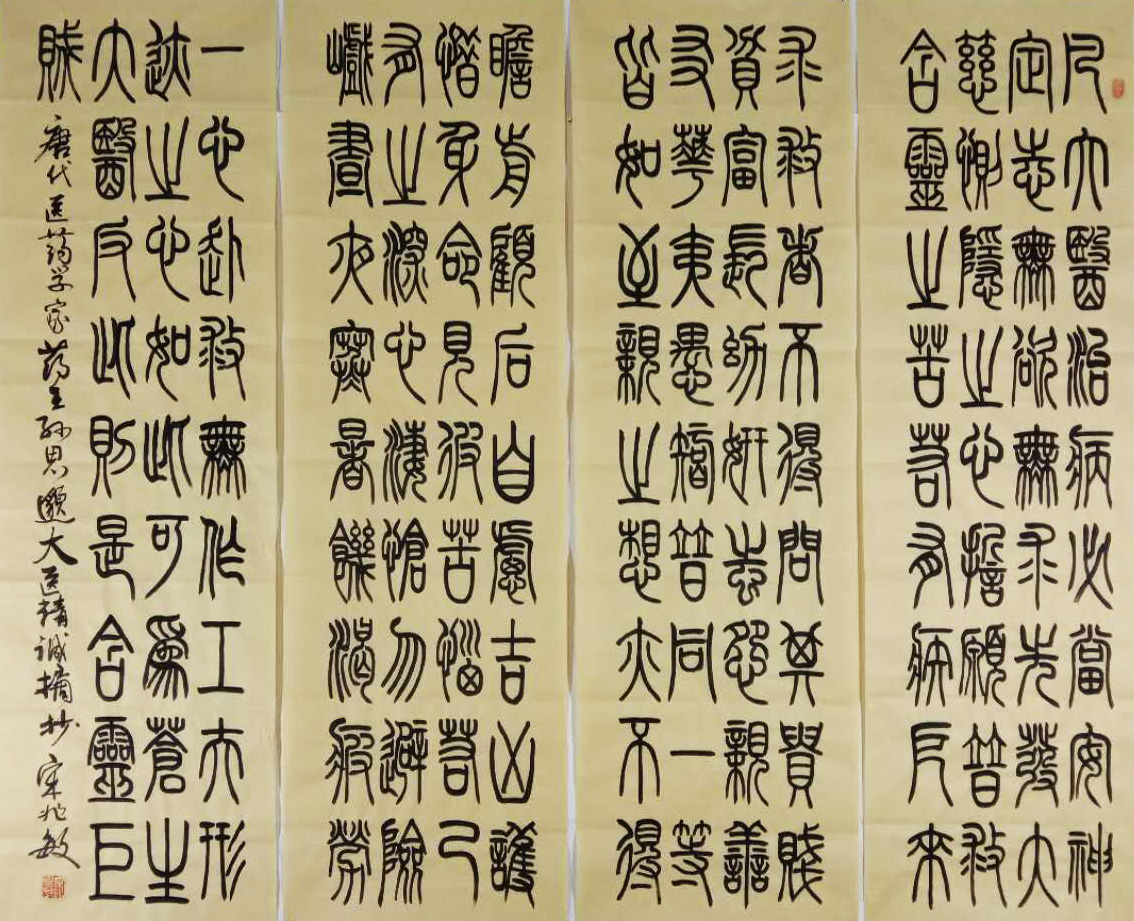 凡大醫治病必當安神
定志無欲無求先發大
慈惻隱之心誓願普救
含靈之苦若有疾厄來
求救者不得問其貴賤
貧富長幼妍蚩怨親善
友華夷愚智普同一等
皆如至親之想亦不得
瞻前顧后自慮吉凶護
惜身命見彼苦惱若己
有之深心淒愴勿避險
巇晝夜寒暑饑渴疲勞
一心赴救無作工夫形
迹之心如此可爲蒼生
大醫反此則是含靈巨
賊
唐代医药学家药王孙思邈大医精诚摘抄 宋兆敏